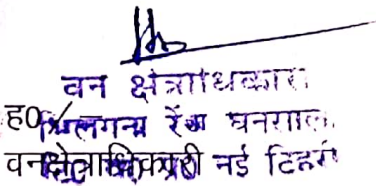 वन क्षेत्राधिकारी
ह०/
भिलंगना रेंज घनसाली
वनक्षेत्राधिकारी नई टिहरी